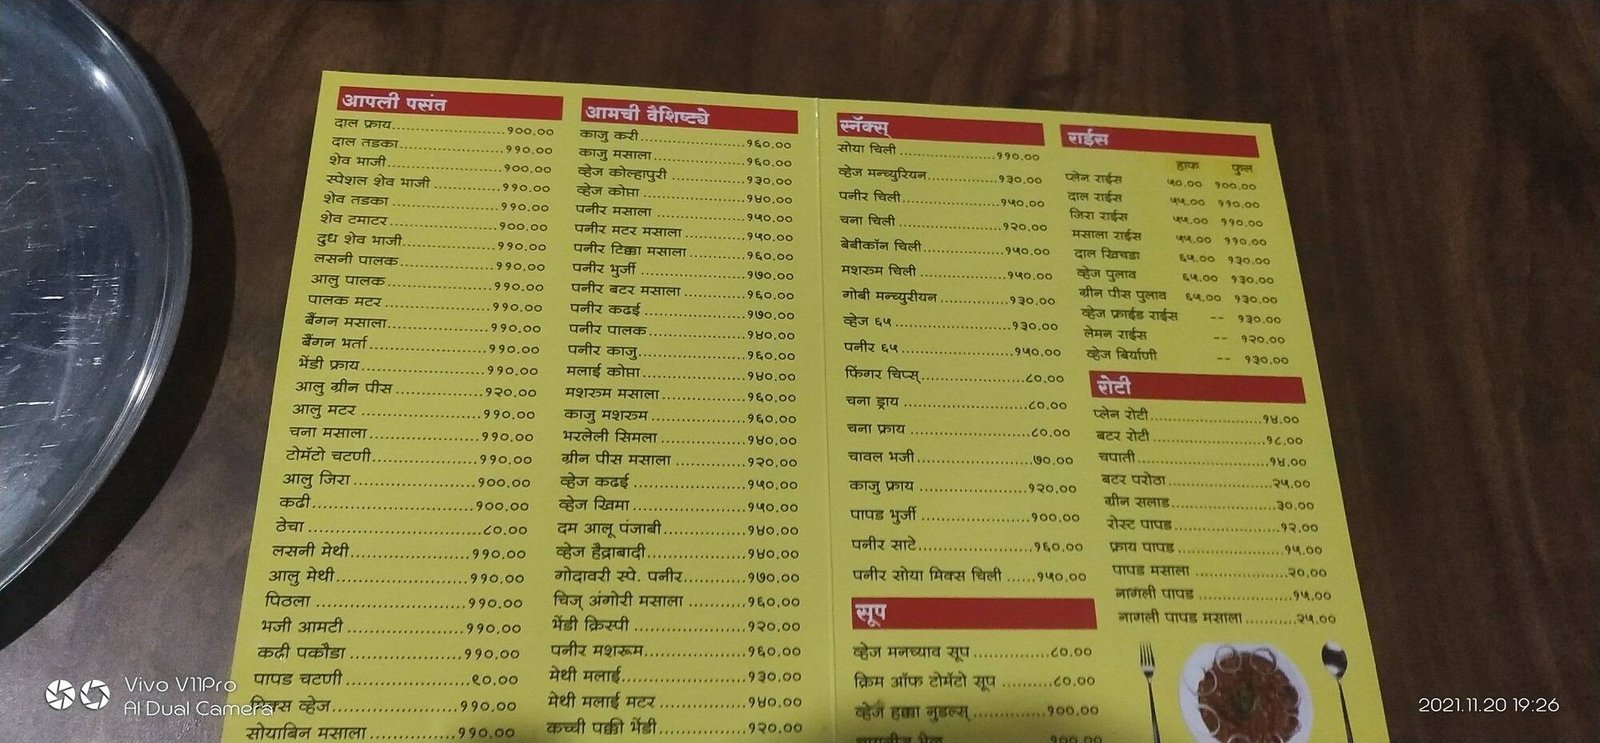 आपली पसंत
दाल फ्राय..........................१००.००
दाल तडका..........................११०.००
शेव भाजी..........................१००.००
स्पेशल शेव भाजी ................११०.००
शेव तडका..........................११०.००
शेव टमाटर..........................१००.००
दुध शेव भाजी......................११०.००
लसनी पालक......................११०.००
आलु पालक........................११०.००
पालक मटर ........................११०.००
बैंगन मसाला........................११०.००
बैंगन भर्ता............................११०.००
भेंडी फ्राय............................११०.००
आलु ग्रीन पीस ....................१२०.००
आलु मटर ..........................११०.००
चना मसाला........................११०.००
टोमॅटो चटणी......................११०.००
आलु जिरा..........................१००.००
कढी..................................१००.००
ठेचा ..................................८०.००
लसनी मेथी........................११०.००
आलु मेथी..........................११०.००
पिठला ..............................११०.००
भजी आमटी ......................११०.००
कढी पकौडा ......................११०.००
पापड चटणी ......................९०.००
व्हेज..................११०.००
सोयाबिन मसाला................११०.००
आमची वैशिष्ट्ये
काजु करी..........................१६०.००
काजु मसाला ......................१६०.००
व्हेज कोल्हापुरी ..................१३०.००
व्हेज कोप्ता ........................१४०.००
पनीर मसाला ......................१५०.००
पनीर मटर मसाला..............१५०.००
पनीर टिक्का मसाला............१६०.००
पनीर भुर्जी ........................१७०.००
पनीर बटर मसाला ..............१६०.००
पनीर कढई ........................१७०.००
पनीर पालक........................१४०.००
पनीर काजु..........................१६०.००
मलाई कोप्ता ......................१४०.००
मशरुम मसाला....................१६०.००
काजु मशरुम ......................१६०.००
भरलेली सिमला ..................१४०.००
ग्रीन पीस मसाला ................१२०.००
व्हेज कढई ........................१५०.००
व्हेज खिमा ........................१५०.००
दम आलू पंजाबी..................१४०.००
व्हेज हैद्राबादी......................१४०.००
गोदावरी स्पे. पनीर..............१७०.००
चिज् अंगोरी मसाला ............१६०.००
भेंडी क्रिस्पी ........................१२०.००
पनीर मशरूम......................१६०.००
मेथी मलाई..........................१३०.००
मेथी मलाई मटर ................१४०.००
कच्ची पक्की भेंडी................१२०.००
स्नॅक्स्
सोया चिली ........................११०.००
व्हेज मन्च्युरियन..................१३०.००
पनीर चिली ........................१५०.००
चना चिली ..........................१२०.००
बेबीकॉन चिली....................१५०.००
मशरुम चिली ......................१५०.००
गोबी मन्च्युरीयन ................१३०.००
व्हेज ६५ ............................१३०.००
पनीर ६५ ............................१५०.००
फिंगर चिप्स्........................८०.००
चना ड्राय ............................८०.००
चना फ्राय ..........................८०.००
चावल भजी........................७०.००
काजु फ्राय ..........................१२०.००
पापड भुर्जी ........................१००.००
पनीर साटे..........................१६०.००
पनीर सोया मिक्स चिली ......१५०.००
सूप
व्हेज मनच्याव सूप ..............८०.००
क्रिम ऑफ टोमॅटो सूप ..........८०.००
व्हेज हक्का नुडल्स् ..............१००.००
राईस
हाफ फुल्ल
प्लेन राईस ५०.०० १००.००
दाल राईस ५५.०० ११०.००
जिरा राईस ५५.०० ११०.००
मसाला राईस ५५.०० ११०.००
दाल खिचडा ६५.०० १३०.००
व्हेज पुलाव ६५.०० १३०.००
ग्रीन पीस पुलाव ६५.०० १३०.००
व्हेज फ्राईड राईस -- १३०.००
लेमन राईस -- १२०.००
व्हेज बिर्याणी -- १३०.००
रोटी
प्लेन रोटी............................१४.००
बटर रोटी ..........................१८.००
चपाती................................१४.००
बटर परोठा ........................२५.००
ग्रीन सलाड ........................३०.००
रोस्ट पापड..........................१२.००
फ्राय पापड ........................१५.००
पापड मसाला ....................२०.००
नागली पापड ....................१५.००
नागली पापड मसाला ..........२५.००
Vivo V11Pro
AI Dual Camera
2021.11.20 19:26